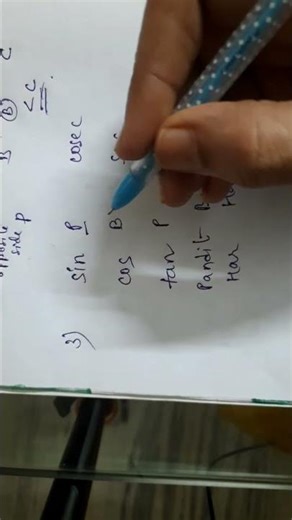 opposite B (B) C
side P <C
3) sin P cosec
cos B
tan P
Pandit
Har